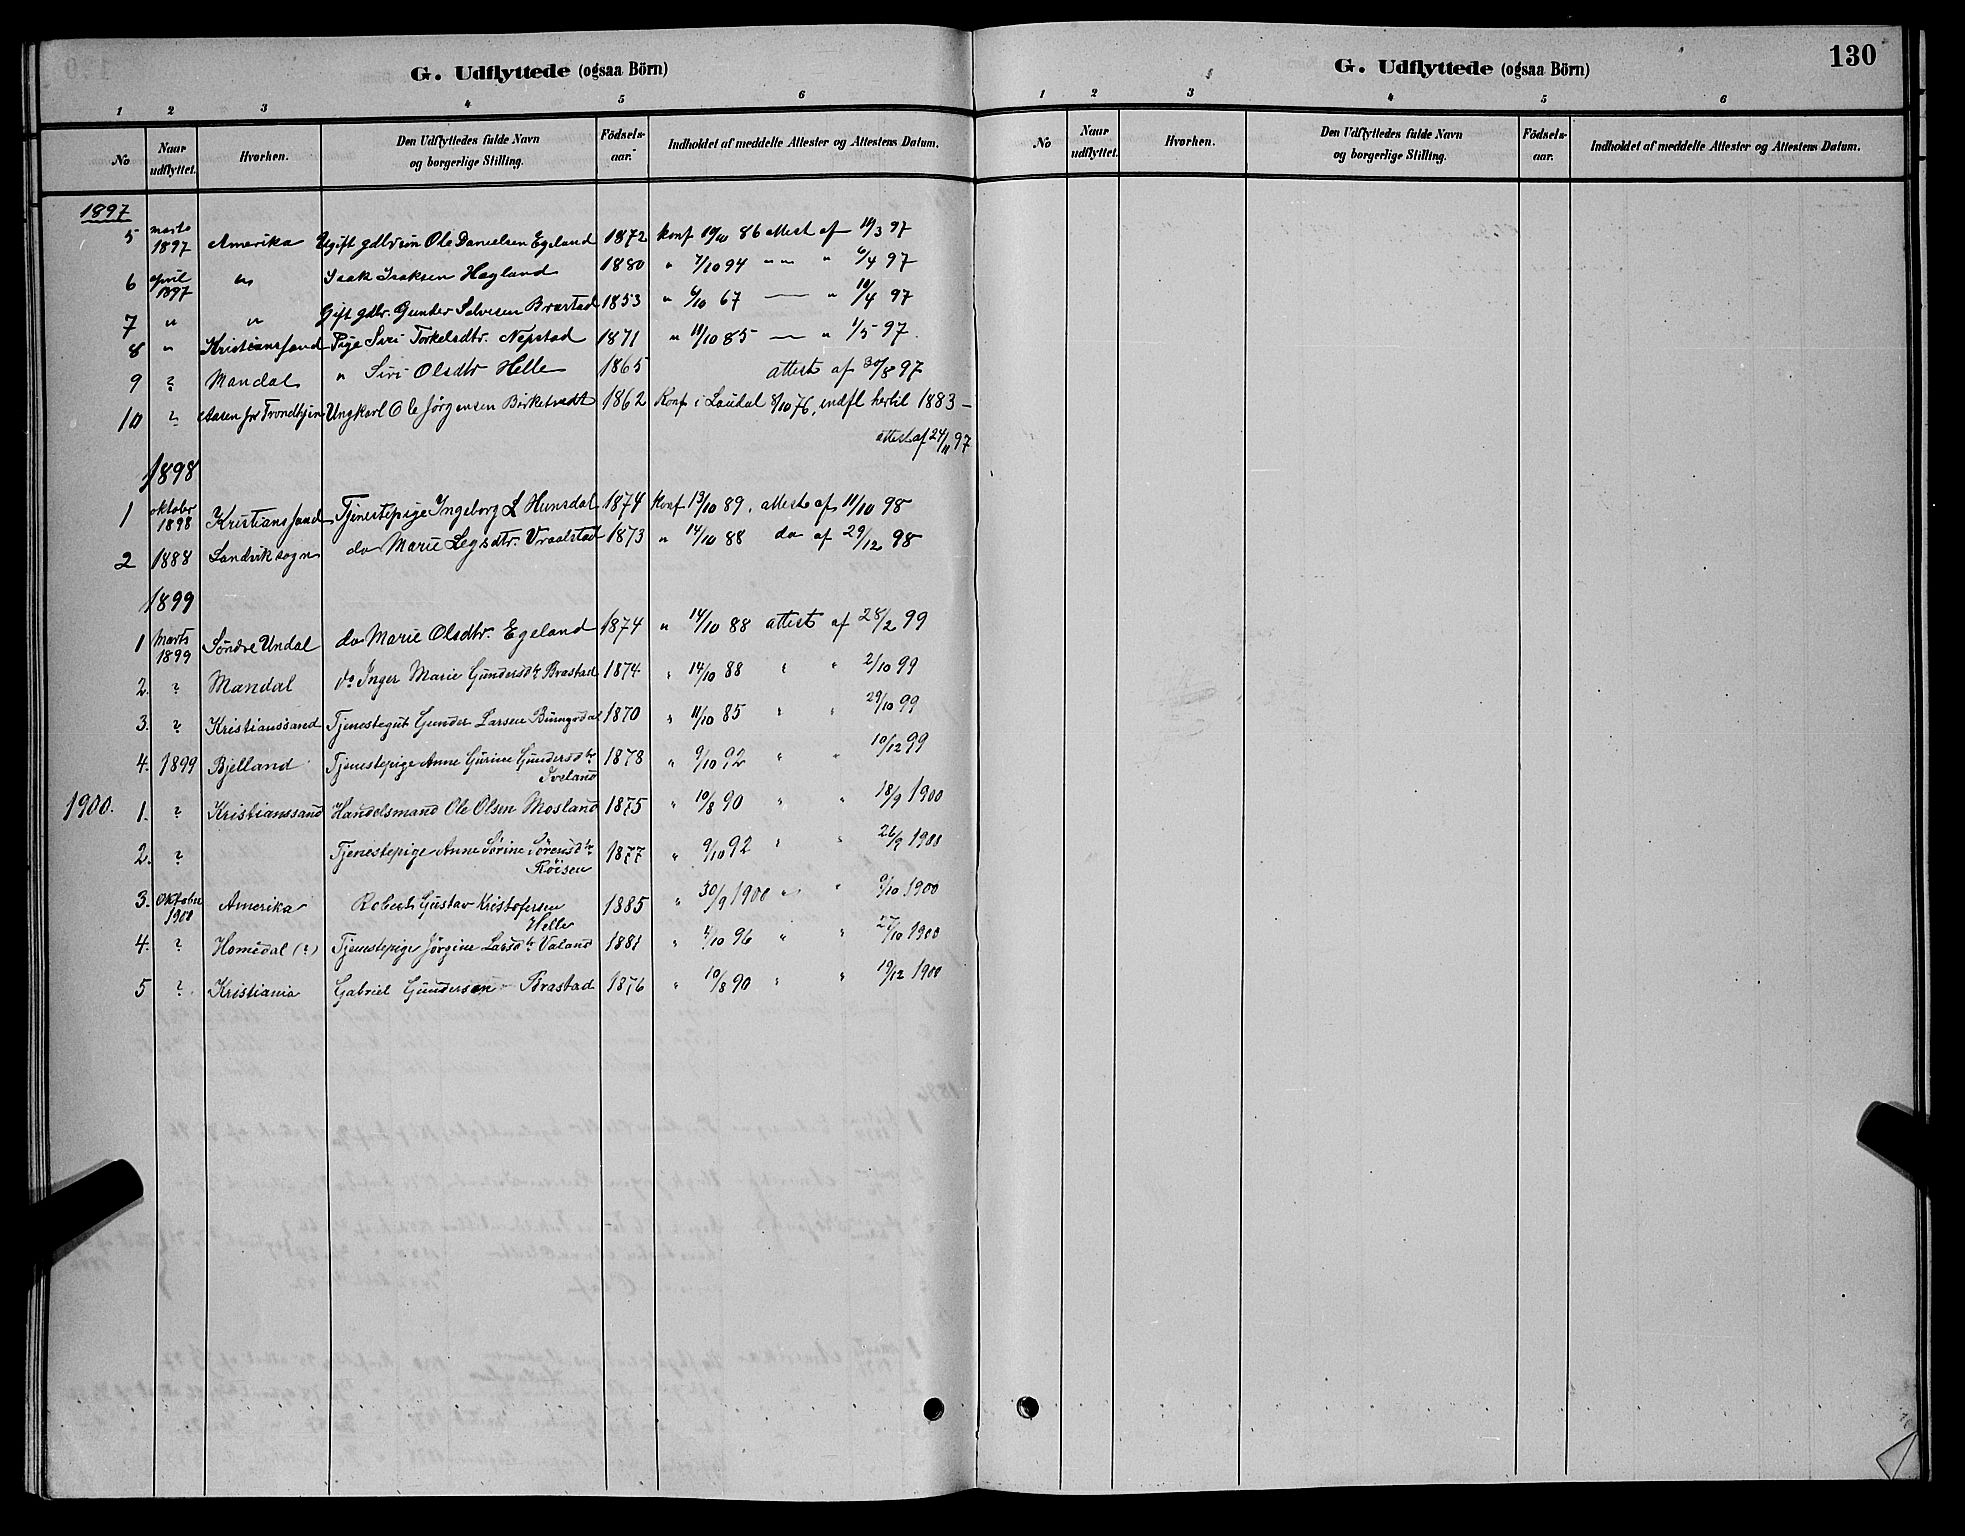 G. Udflyttede (ogsaa Börn)
1 2 3 4 5 6
No Naar udflyttet. Hvorhen. Den Udflyttedes fulde Navn og borgerlige Stilling. Födsels-aar. Indholdet af meddelte Attester og Attestens Datum.
1897
5 marts 1897 Amerika Ugift gdbrsøn Ole Danielsen Egeland 1872 Konf 10/10 86 attest af 11/3 97
6 april 1897 " Isak Isaksen Høgland 1880 " 7/10 94 " " " 6/4 97
7 " " Gift gdbr. Gunder Salvesen Brastad 1853 " 6/10 67 — " 10/4 97
8 " Kristianssand Pige Siri Torkelsdtr. Nepstad 1871 " 11/10 85 — " 1/5 97.
9 ? Mandal " Siri Olsdtr Helle 1865 attest af 30/8 97
10 ? Aasen fr Trondhjem Ungkarl Ole Jörgensen Birketvedt 1862 Konf i Laudal 8/10 76, indfl hertil 1883 –
attest af 24/11 97
1898
1 oktober 1898 Kristianssand Tjenestepige Ingeborg L Hunsdal 1874 Konf 13/10 89, attest af 11/10 98
2 1888 Sandvik sogn do Marie Legsdtr. Vraalstad 1873 " 14/10 88 do af 29/12 98
1899
1 Marts 1899 Söndre Undal do Marie Olsdtr. Egeland 1874 " 14/10 88 attest af 28/2 99
2. ? Mandal do Inger Marie Gundersdtr Brastad 1874 " 14/10 88 " " 2/10 99
3. ? Kristianssand Tjenestegut Gunder Larsen 1870 " 11/10 85 " " 29/10 99
4. 1899 Bjelland Tjenestepige Anne Gurine Gundersdtr Iveland 1878 " 9/10 92 " " 10/12 99
1900. 1. ? Kristianssand Handelsmand Ole Olsen Mosland 1875 " 10/8 90 " " 18/9 1900
2. ? Tjenestepige Anne Sörine Sörensdtr Röisen 1877 " 9/10 92 " " 26/9 1900
3. Oktober 1900 Amerika Robert Gustav Kristofersen Helle 1885 " 30/9 1900 " " 9/10 1900
4. ? Homedal (?) Tjenestepige Jörgine Larsdtr Valand 1881 " 4/10 96 " " 27/10 1900
5 ? Kristiania Gabriel Gundersen Brastad 1876 " 10/8 90 " " 19/12 1900
G. Udflyttede (ogsaa Börn)
130
1 2 3 4 5 6
No Naar udflyttet. Hvorhen. Den Udflyttedes fulde Navn og borgerlige Stilling. Födsels-aar. Indholdet af meddelte Attester og Attestens Datum.